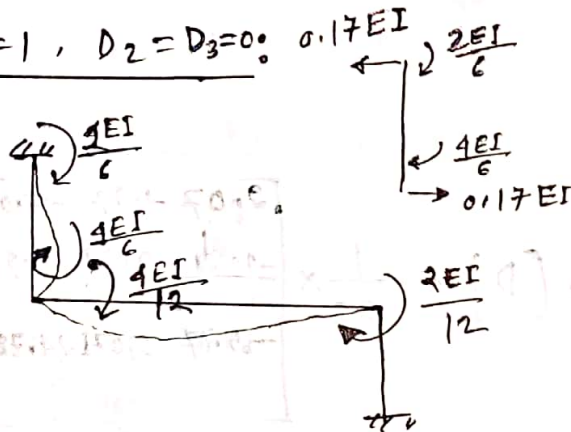 =1 , D2 = D3=0:
0.17EI
2EI/6
4EI/6
0.17EI
4EI/6
4EI/12
2EI/12